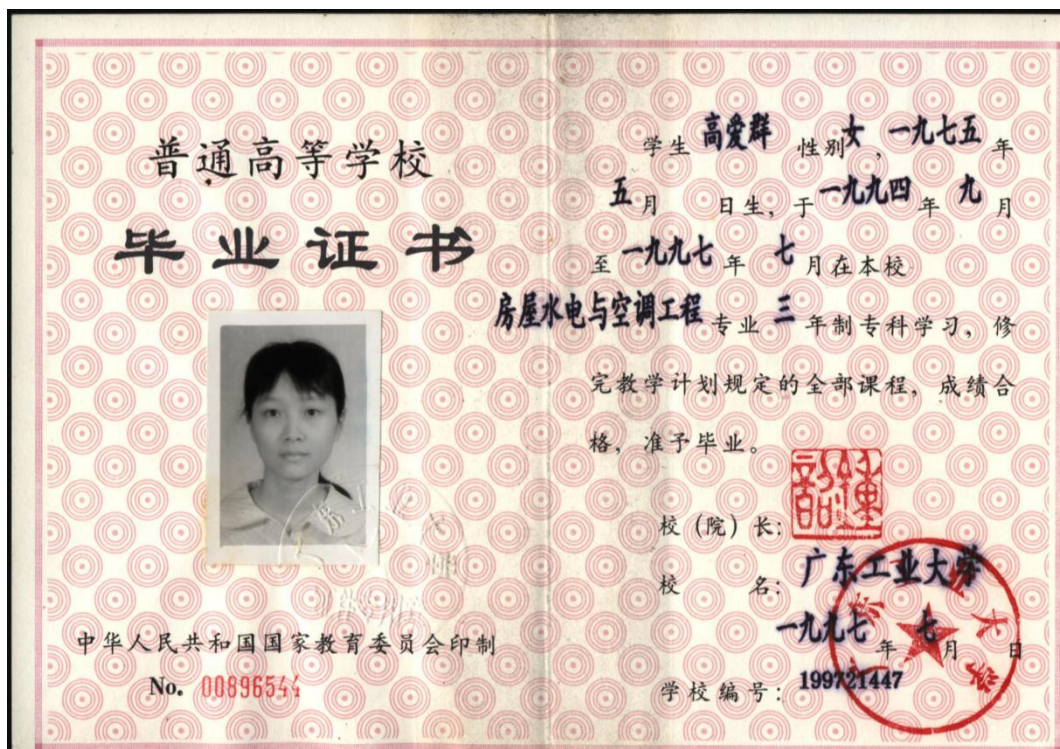 普通高等学校
毕业证书
中华人民共和国国家教育委员会印制
No. 00896544
学生 高爱群 性别女，一九七五年
五月 日生，于一九九四年九月
至一九九七年 七月在本校
房屋水电与空调工程专业 三 年制专科学习，修
完教学计划规定的全部课程，成绩合
格，准予毕业。
校（院）长：
校 名：广东工业大学
一九九七年 七月 日
学校编号：199721447